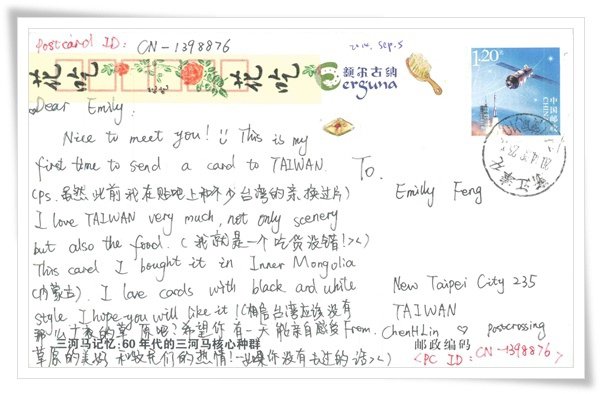 Postcard ID: CN-1398876
2014. Sep. 5
1.20元
中国邮政
CHINA
花 吃
花 吃
额尔古纳
erguna
Dear Emily:
Nice to meet you! This is my
first time to send a card to TAIWAN.
(ps. 虽然此前我在贴吧上和不少台湾的亲换过片)
I love TAIWAN very much, not only scenery
but also the food. (我就是一个吃货没错!><)
This card I bought it in Inner Mongolia
(内蒙古). I love cards with black and white
style. I hope you will like it! (相信台湾应该没有
那么
的草原吧?希望你有一天能亲自感受
草原的美
和牧民们的热情!
如果你没有去过的话><)
三河马记忆:60年代的三河马核心种群
To.
Emily Feng
New Taipei City 235
TAIWAN
From. ChenHLin ♡ Postcrossing
邮政编码
<PC ID: CN-1398876>